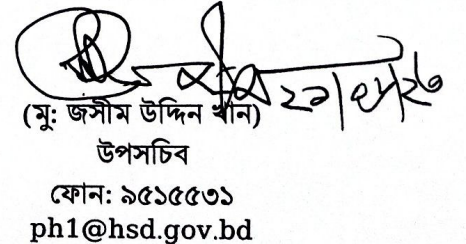 (মু: জসীম উদ্দিন খান)
উপসচিব
ফোন: ৯৫১৫৫৩১
ph1@hsd.gov.bd